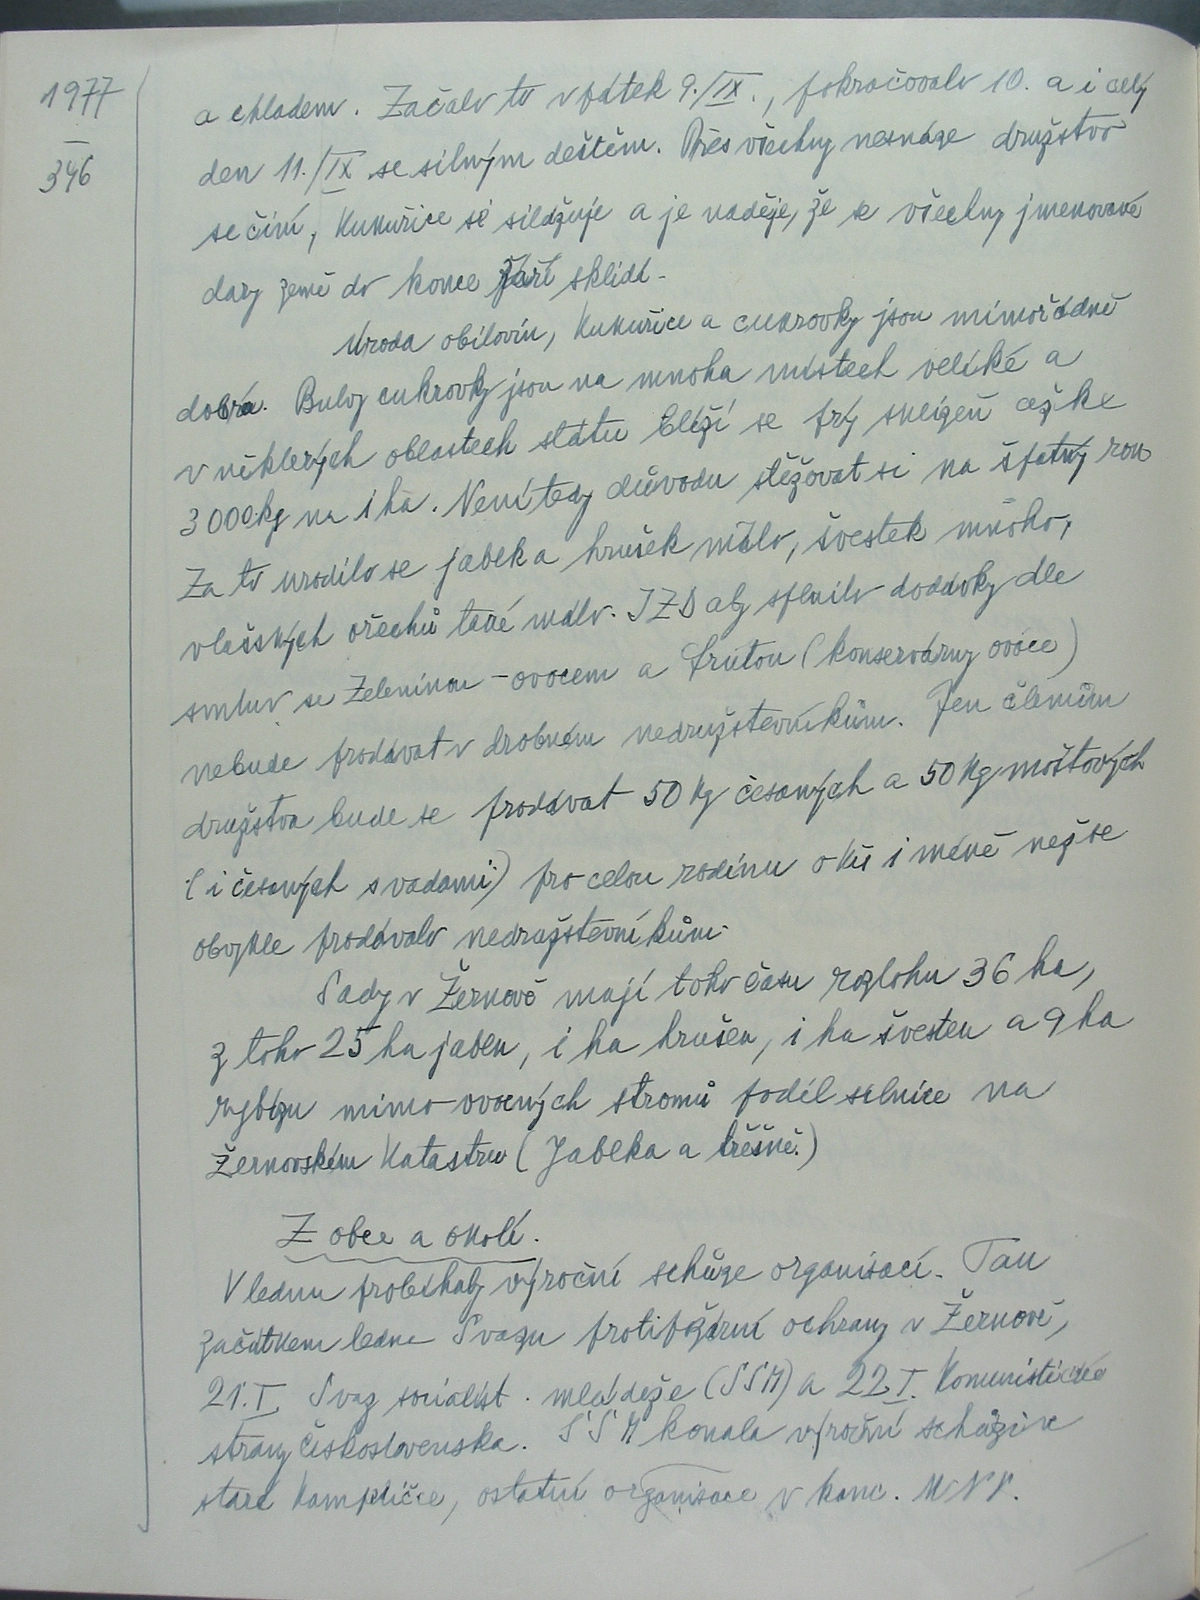 1977
—
346
a chladem. Začalo to v pátek 9./IX., pokračovalo 10. a i celý
den 11./IX se silným deštěm. Přes všechny nesnáze družstvo
se činí, kukuřice se silážuje a je naděje, že se všechny jmenované
dary země do konce září sklidí.
Úroda obilovin, kukuřice a cukrovky jsou mimořádně
dobrá. Bulvy cukrovky jsou na mnoha místech veliké a
v některých oblastech státu blíží se prý sklizeň až ke
3000kg na 1 ha. Není tedy důvodu stěžovat si na špatný rok
Za to urodilo se jablek a hrušek málo, švestek mnoho,
vlašských ořechů také málo. JZD aby splnilo dodávky dle
smluv se Zeleninou – ovocem a Frutou (konservárny ovoce)
nebude prodávat v drobném nedružstevníkům. Jen členům
družstva bude se prodávat 50 kg česaných a 50 kg moštových
(i česaných s vadami) pro celou rodinu o Kčs i méně než se
obvykle prodávalo nedružstevníkům.
Sady v Žernově mají toho času rozlohu 36 ha,
z toho 25 ha jabek, 1 ha hrušek, 1 ha švestek a 9 ha
rybízu mimo ovocných stromů podél silnice na
Žernovském katastru (Jabłka a třešně.)
Z obce a okolí.
V lednu probíhaly výroční schůze organisací. Tak
začátkem ledna Svazu protipožární ochrany v Žernově,
21.I. Svaz socialist. mládeže (SSM) a 22.I. Komunistické
strany Československa. SSM konala výroční schůzi ve
staré kampeličce, ostatní organisace v kanc. MNV.